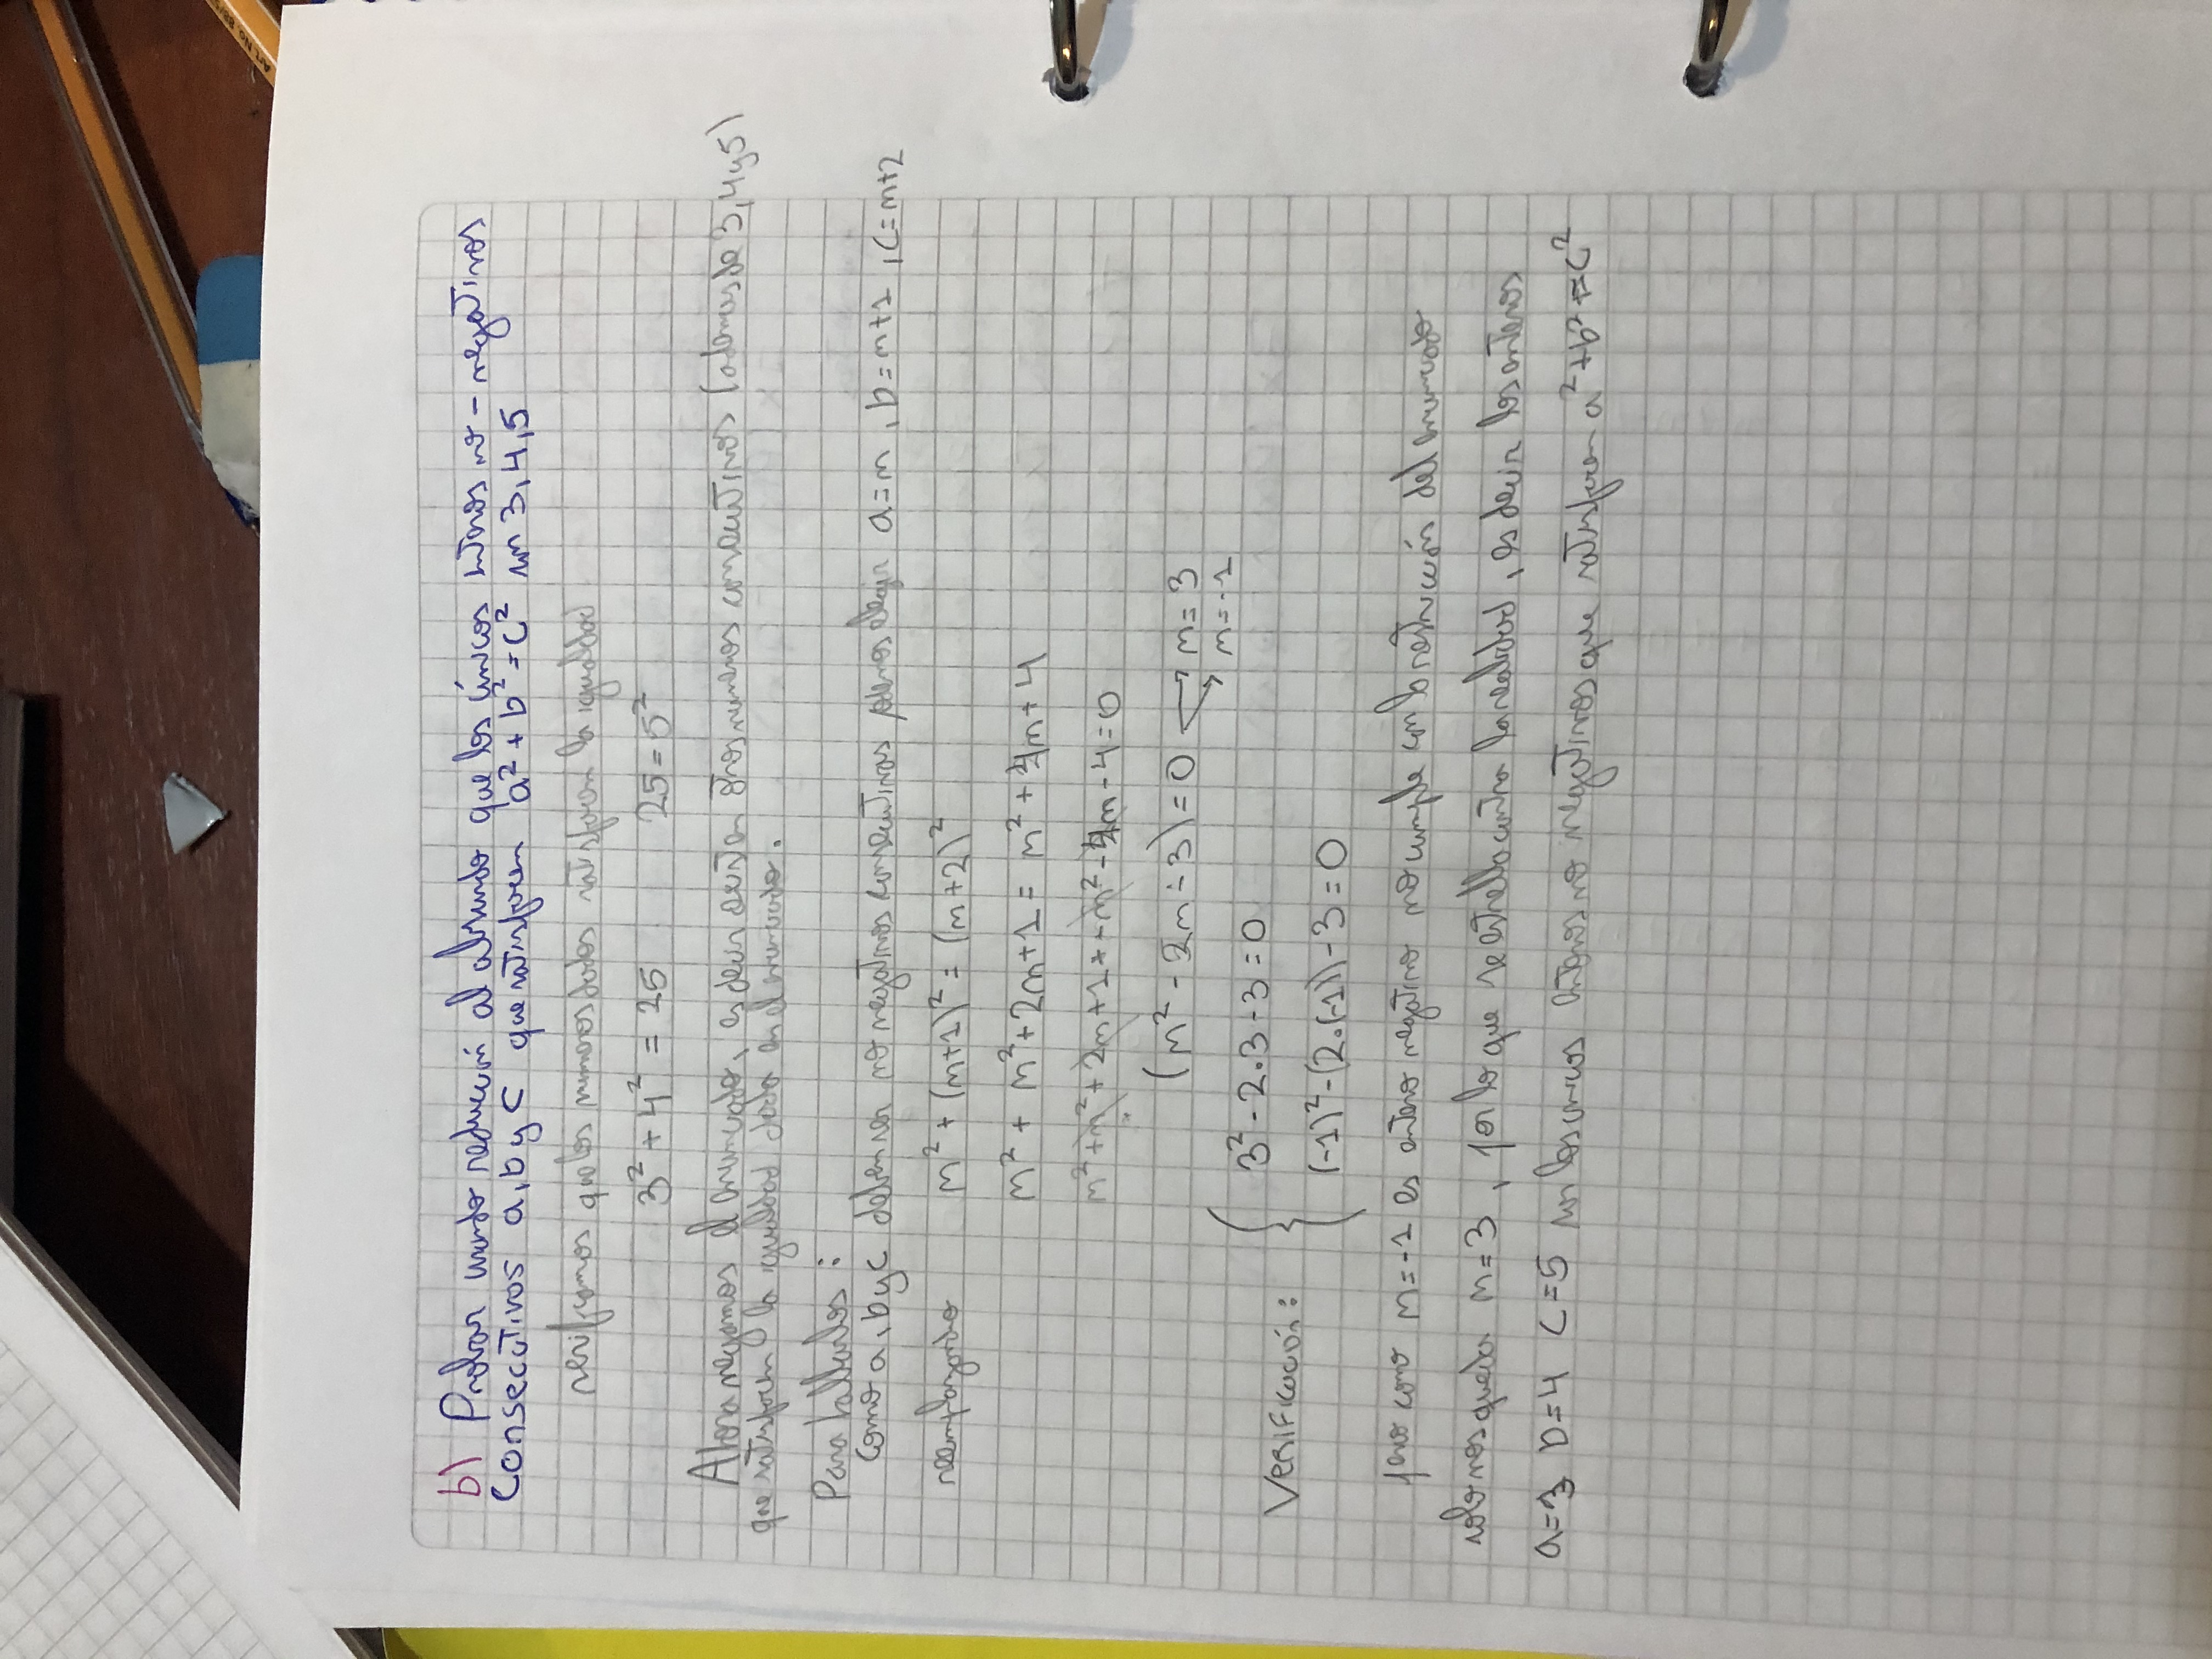 Art. No. 88
b) Probar usando reducción al absurdo que los únicos enteros no-negativos
consecutivos a, b y c que satisfacen a² + b² = c² son 3, 4, 5
verificamos que los numeros dados satisfacen la igualdad
3² + 4² = 25 25 = 5²
Ahora negamos el enunciado, es decir existen otros numeros consecutivos (ademas de 3, 4 y 5)
que satisfacen la igualdad dada en el enunciado.
Para hallarlos:
como a, b y c deben ser no negativos consecutivos podemos elegir a = n, b = n+1, c = n+2
reemplazando n² + (n+1)² = (n+2)²
n² + n² + 2n + 1 = n² + 4n + 4
n² + n² + 2n + 1 + - n² - 4n - 4 = 0
(n² - 2n - 3) = 0 n = 3
n = -1
Verificación: 3² - 2.3 - 3 = 0
(-1)² - (2.(-1)) - 3 = 0
pero como n = -1 es entero negativo no cumple con la restricción del enunciado
solo nos queda n = 3, por lo que se estrella contra la realidad, es decir los enteros
a = 3 b = 4 c = 5 son los unicos enteros no negativos que satisfacen a² + b² = c²